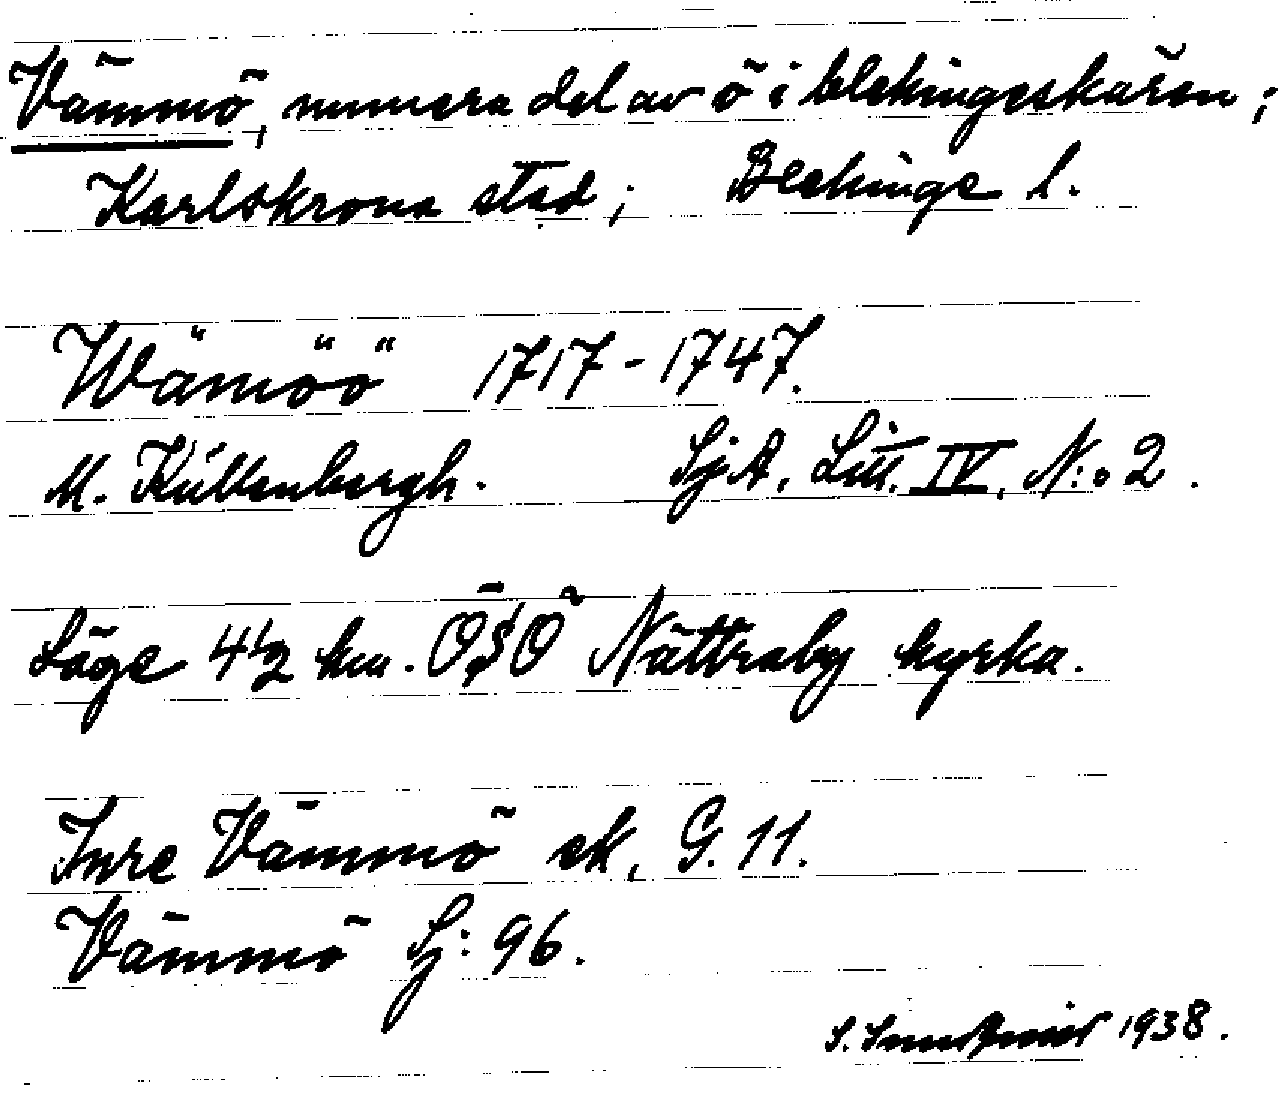 Vämmö, numera del av ö i blekingeskären;
Karlskrona stad; Blekinge l.
Wämöö 1717-1747.
M. Küllenbergh. SjA. Litt. IV. N:o 2.
Läge 4 1/2 km. ÖSÖ Nättraby kyrka.
Inre Vämmö ek. G. 11.
Vämmö Sj: 96.
S. 1938.